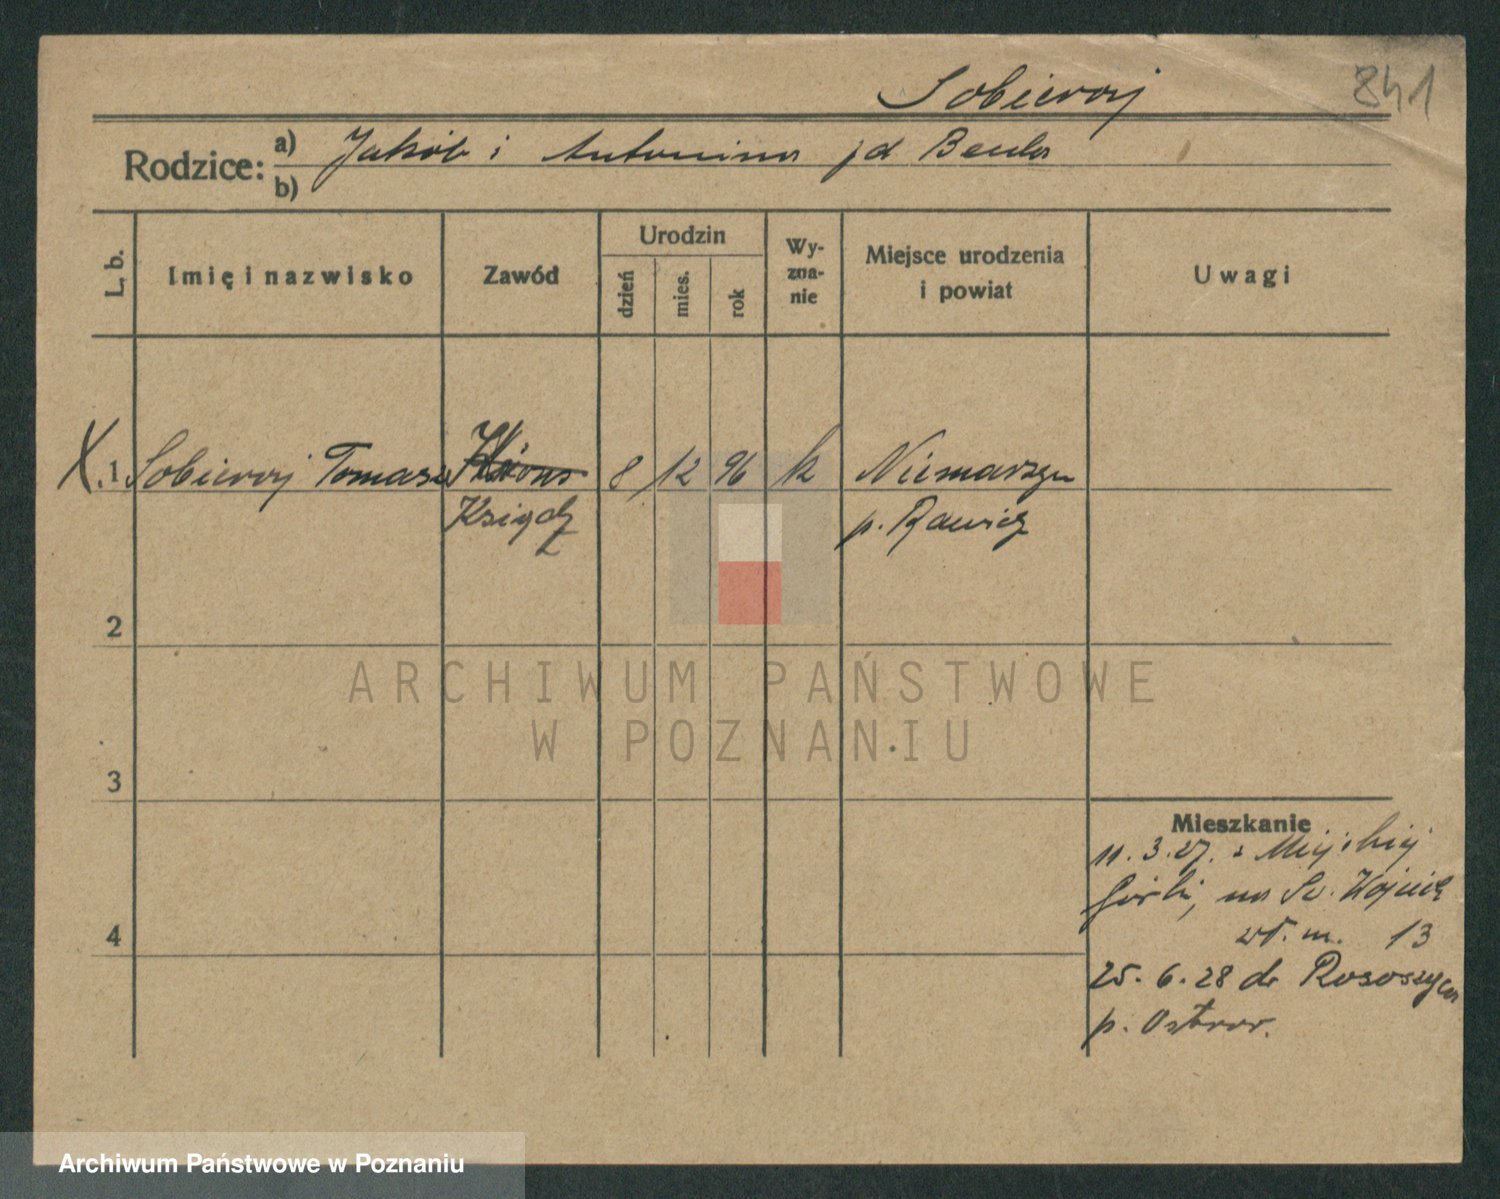 841
Sobieraj
Rodzice: a) Jakób i Antonina
b)
L. b.
Imię i nazwisko
Zawód
Urodzin
dzień
mies.
rok
Wy-
zna-
nie
Miejsce urodzenia
i powiat
Uwagi
X. 1 Sobieraj Tomasz 8 12 96 k
Ksiądz p. Rawicz
2
3
4
Mieszkanie
11. 3. 27. z Miejskiej
Górki, na Św. Wojciech
13
25. 6. 28 do Rososzyca
p. Ostrów.
ARCHIWUM PAŃSTWOWE
W POZNANIU
Archiwum Państwowe w Poznaniu